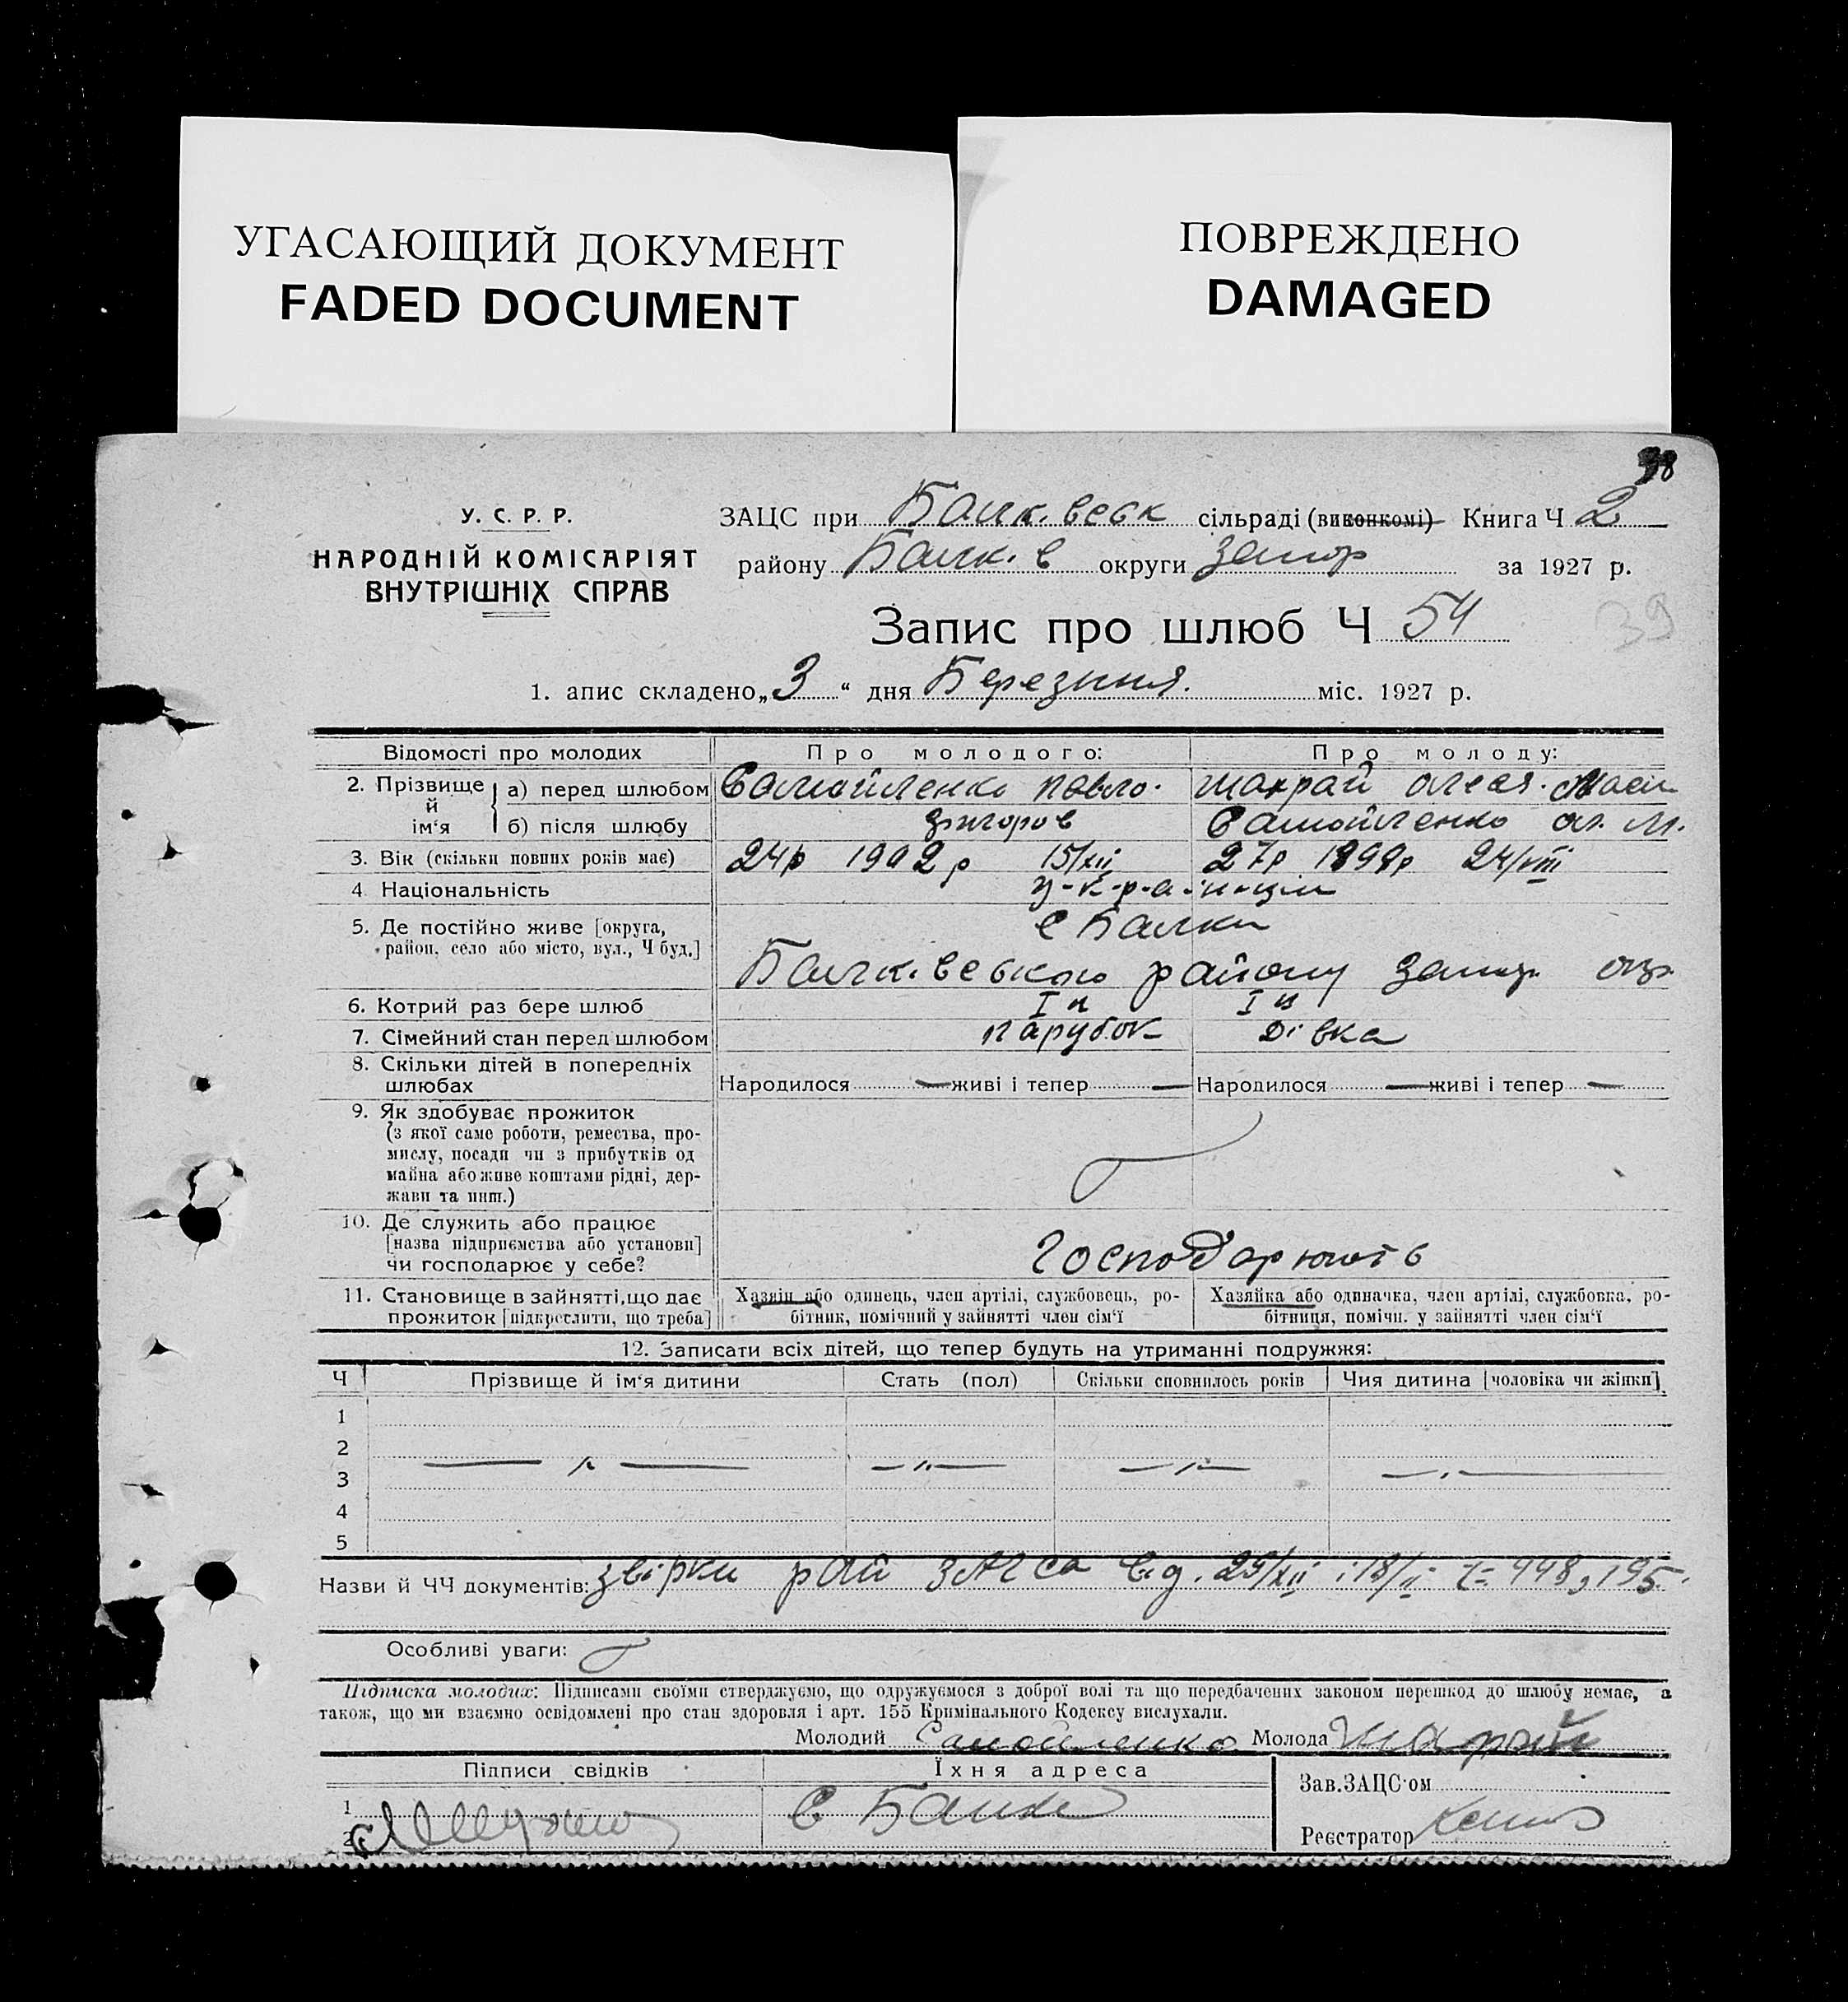 УГАСАЮЩИЙ ДОКУМЕНТ
FADED DOCUMENT
ПОВРЕЖДЕНО
DAMAGED
38
У. С. Р. Р.
НАРОДНІЙ КОМІСАРІЯТ
ВНУТРІШНІХ СПРАВ
ЗАЦС при Балк.вськ сільраді (виконкомі) Книга Ч 2
району Балк.в округи Запор за 1927 р.
Запис про шлюб Ч 54
39
1. апис складено „3“ дня Березиня. міс. 1927 р.
Відомості про молодих Про молодого: Про молоду:
2. Прізвище й ім‘я а) перед шлюбом Самойленко Павло. Шахрай Олеся.
б) після шлюбу Григоров Самойленко Ол. М.
3. Вік (скільки повних років має) 24р 1902р 15/XII 27р 1899р 24/VIII
4. Національність у-к-р-а-ї-н-ці
5. Де постійно живе [округа, с Балки
район, село або місто, вул., Ч буд.]
Балк.вського району Запор. окр.
6. Котрий раз бере шлюб I й I й
7. Сімейний стан перед шлюбом парубок Дівка
8. Скільки дітей в попередніх
шлюбах Народилося — живі і тепер — Народилося — живі і тепер —
9. Як здобуває прожиток
(з якої саме роботи, ремества, про-
мислу, посади чи з прибутків од
майна або живе коштами рідні, дер-
жави та инш.)
10. Де служить або працює
[назва підприємства або установи] Господарюють
чи господарює у себе?
11. Становище в зайнятті, що дає Хазяїн або одинець, член артілі, службовець, ро- Хазяйка або одиначка, член артілі, службовка, ро-
прожиток [підкреслити, що треба] бітник, помічний у зайнятті член сім‘ї бітниця, помічн. у зайнятті член сім‘ї
12. Записати всіх дітей, що тепер будуть на утриманні подружжя:
Ч Прізвище й ім‘я дитини Стать (пол) Скільки сповнилось років Чия дитина [чоловіка чи жінки]
1
2
3
4
5
Назви й ЧЧ документів: звірки рай ЗАГСа від. 29/XII і 18/II 448, 195.
Особливі уваги:
Підписка молодих: Підписами своїми стверджуємо, що одружуємося з доброї волі та що передбачених законом перешкод до шлюбу немає, а
також, що ми взаємно освідомлені про стан здоровля і арт. 155 Кримінального Кодексу вислухали.
Молодий Самойленко Молода Шахрай
Підписи свідків Їхня адреса
Зав. ЗАЦС‘ом
1 С Балки
2
Реєстратор